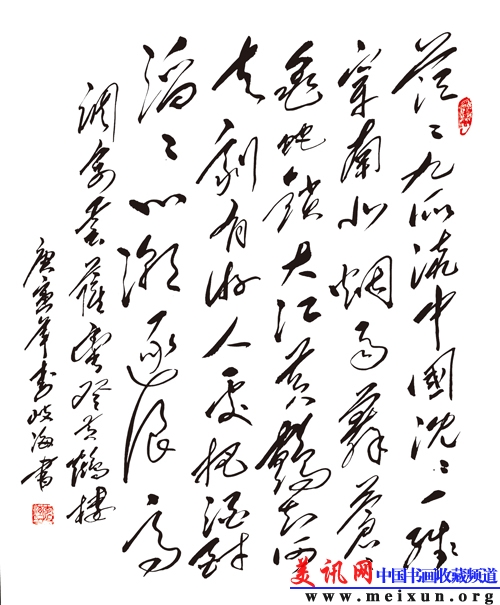 茫〻九派流中國沈〻一线
穿南北烟雨莽蒼〻
龜蛇鎖大江黄鶴知何
去剩有游人處把酒酹
滔〻心潮逐浪高
调寄菩薩蠻登黄鶴樓
庚寅年李岐海書
美讯网中国书画收藏频道
www.meixun.org